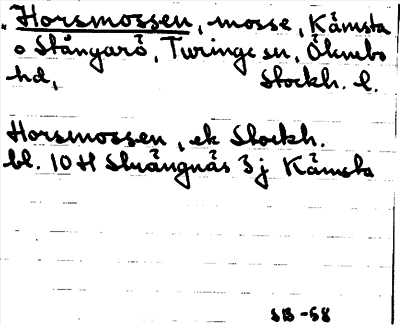 Horsmossen, mosse, Kämsta
o Stångarö, Turinge sn, Öknebo
hd, Stockh. l.
Horsmossen, ek Stockh.
bl. 10 H Strängnäs 3 j Kämsta
SB -58